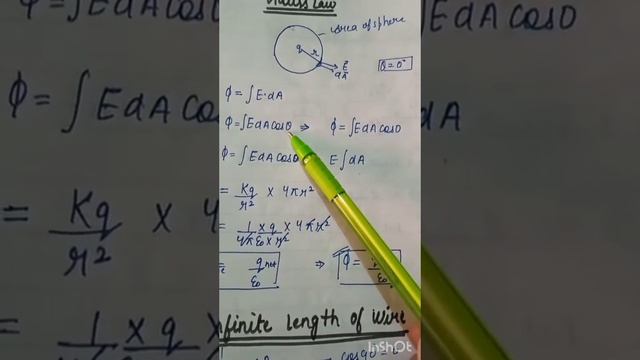 Gauss Law
area of sphere
q r
E
dA
θ = 0°
ϕ = ∫E·dA
ϕ = ∫EdA cosθ ⇒ ϕ = ∫EdA cos0
ϕ = ∫EdA cos0 E∫dA
= Kq/r² × 4πr²
= 1/4πε₀ × q/r² × 4πr²
= qnet/ε₀ ⇒ ϕ = /ε₀
nfinite length of wire
InShOt